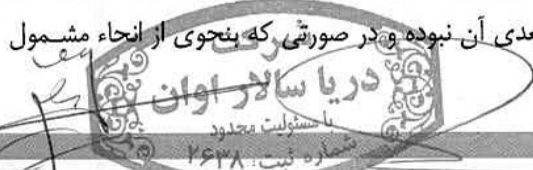 عدی آن نبوده و در صورتی که بنحوی از انحاء مشمول
شرکت
دریا سالار اوان
با مسئولیت محدود
شماره ثبت: ۲۶۳۸